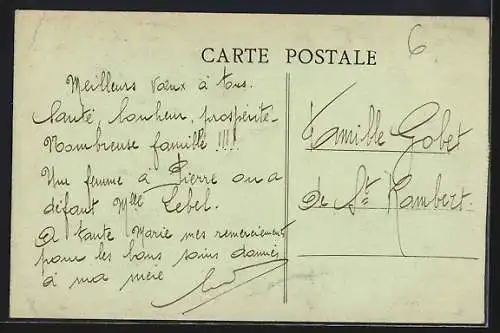 CARTE POSTALE
6
Meilleurs vœux à tous.
Santé, bonheur, prospérité.
Nombreuse famille !!!!
Une femme à Pierre ou a
défaut Mlle Lebel.
A tante Marie mes remerciements
pour les bons soins donnés
à ma mère
Famille Gobet
de St Rambert.